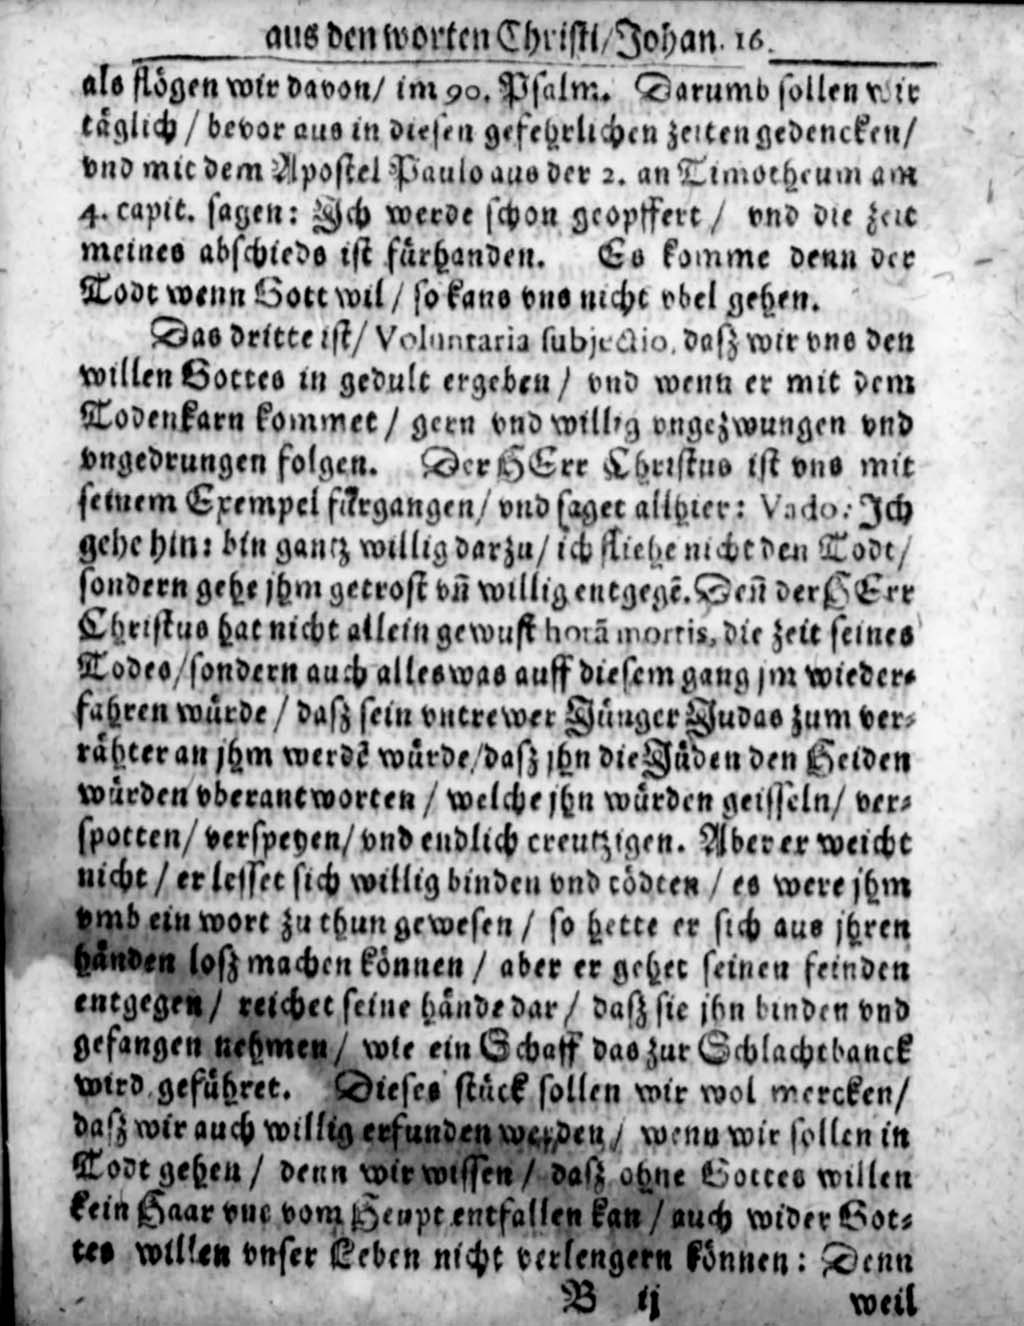 aus den worten Christi/ Johan. 16.
als flögen wir davon/ im 90. Psalm. Darumb sollen wir
täglich / bevor aus in diesen gefehrlichen zeiten gedencken/
vnd mit dem Apostel Paulo aus der 2. an Timotheum am
4. capit. sagen: Ich werde schon geopffert / vnd die zeit
meines abschieds ist fürhanden. Es komme denn der
Todt wenn Gott wil / so kans vns nicht vbel gehen.
Das dritte ist/ Voluntaria subjectio, dasz wir vns den
willen Gottes in gedult ergeben / vnd wenn er mit dem
Todenkarn kommet / gern vnd willig vngezwungen vnd
vngedrungen folgen. Der HErr Christus ist vns mit
seinem Exempel fürgangen/ vnd saget allhier: Vado: Ich
gehe hin: bin gantz willig darzu/ ich fliehe nicht den Todt/
sondern gehe jhm getrost vñ willig entgegẽ. Deñ der HErr
Christus hat nicht allein gewust horã mortis, die zeit seines
Todes/ sondern auch alles was auff diesem gang jm wieder-
fahren würde / dasz sein vntrewer Jünger Judas zum ver-
rähter an jhm werdẽ würde/ dasz jhn die Jüden den Heiden
würden vberantworten / welche jhn würden geisseln/ ver-
spotten/ verspeyen/ vnd endlich creutzigen. Aber er weicht
nicht / er lesset sich willig binden vnd tödten / es were jhm
vmb ein wort zu thun gewesen / so hette er sich aus jhren
händen losz machen können / aber er gehet seinen feinden
entgegen / reichet seine hände dar / dasz sie jhn binden vnd
gefangen nehmen / wie ein Schaff das zur Schlachtbanck
wird geführet. Dieses stück sollen wir wol mercken/
dasz wir auch willig erfunden werden / wenn wir sollen in
Todt gehen / denn wir wissen / dasz ohne Gottes willen
kein Haar vns vom Heupt entfallen kan / auch wider Got-
tes willen vnser Leben nicht verlengern können: Denn
B ij weil